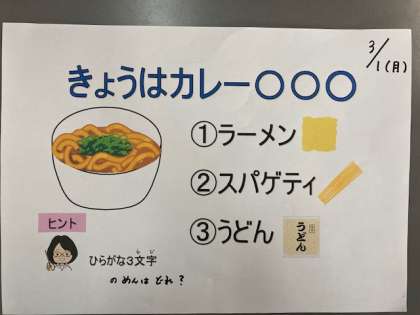 3/1(月)
きょうはカレー〇〇〇
①ラーメン
②スパゲティ
③うどん
うどん
ヒント
ひらがな3文字
のめんは どれ?